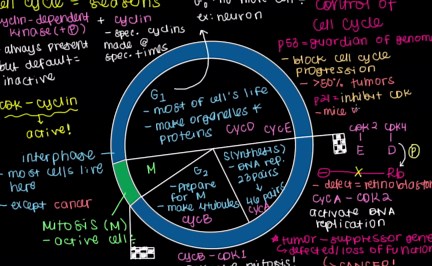 cell cycle = seasons
cyclin-dependent + cyclin
kinase (+P)
- spec. cyclins
made @
spec. times
always present
but default =
inactive
cdk-cyclin
active!
no more cell
ex: neuron
control of
cell cycle
p53 = guardian of genome
- block cell cycle
progression
- >50% tumors
p21 = inhibit cdk
- mice
G1
- most of cell's life
- make organelles +
proteins
cycD cycE
interphase
- most cells live
here
- except cancer
M
Mitosis (M)
- active cell
G2
- Prepare
for M
- make
cycB
S (synthesis)
- DNA rep.
23 pairs
46 pairs
cycA
cdk2 cdk4
E D
P
Rb
- defect = retinoblastoma
cycA - cdk2
activate DNA
replication
*tumor-suppressor gene
defected/loss of function
cancer!
cycB - cdk1
mitosis!